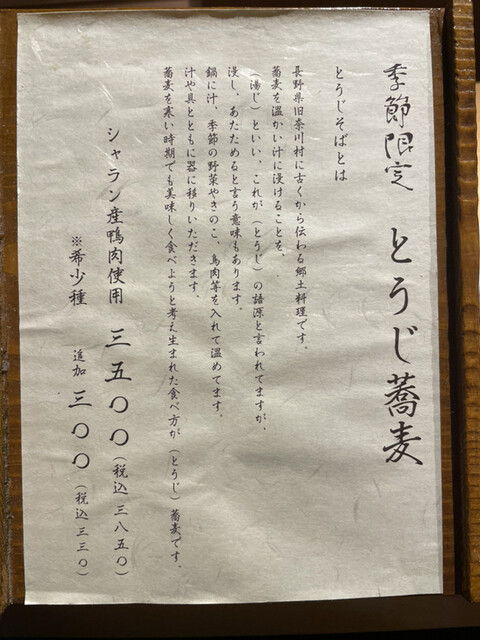 季節限定 とうじ蕎麦
とうじそばとは
長野県旧奈川村に古くから伝わる郷土料理です。
蕎麦を温かい汁に浸けることを、
(湯じ)といい、これが(とうじ)の語源と言われてますが、
浸し、あたためると言う意味もあります。
鍋に汁、季節の野菜やきのこ、鳥肉等を入れて温めてます。
汁や具とともに器に移りいただきます。
蕎麦を寒い時期でも美味しく食べようと考え生まれた食べ方が(とうじ)蕎麦です。
シャラン産鴨肉使用 三五〇〇(税込三八五〇)
※希少種 追加 三〇〇(税込三三〇)